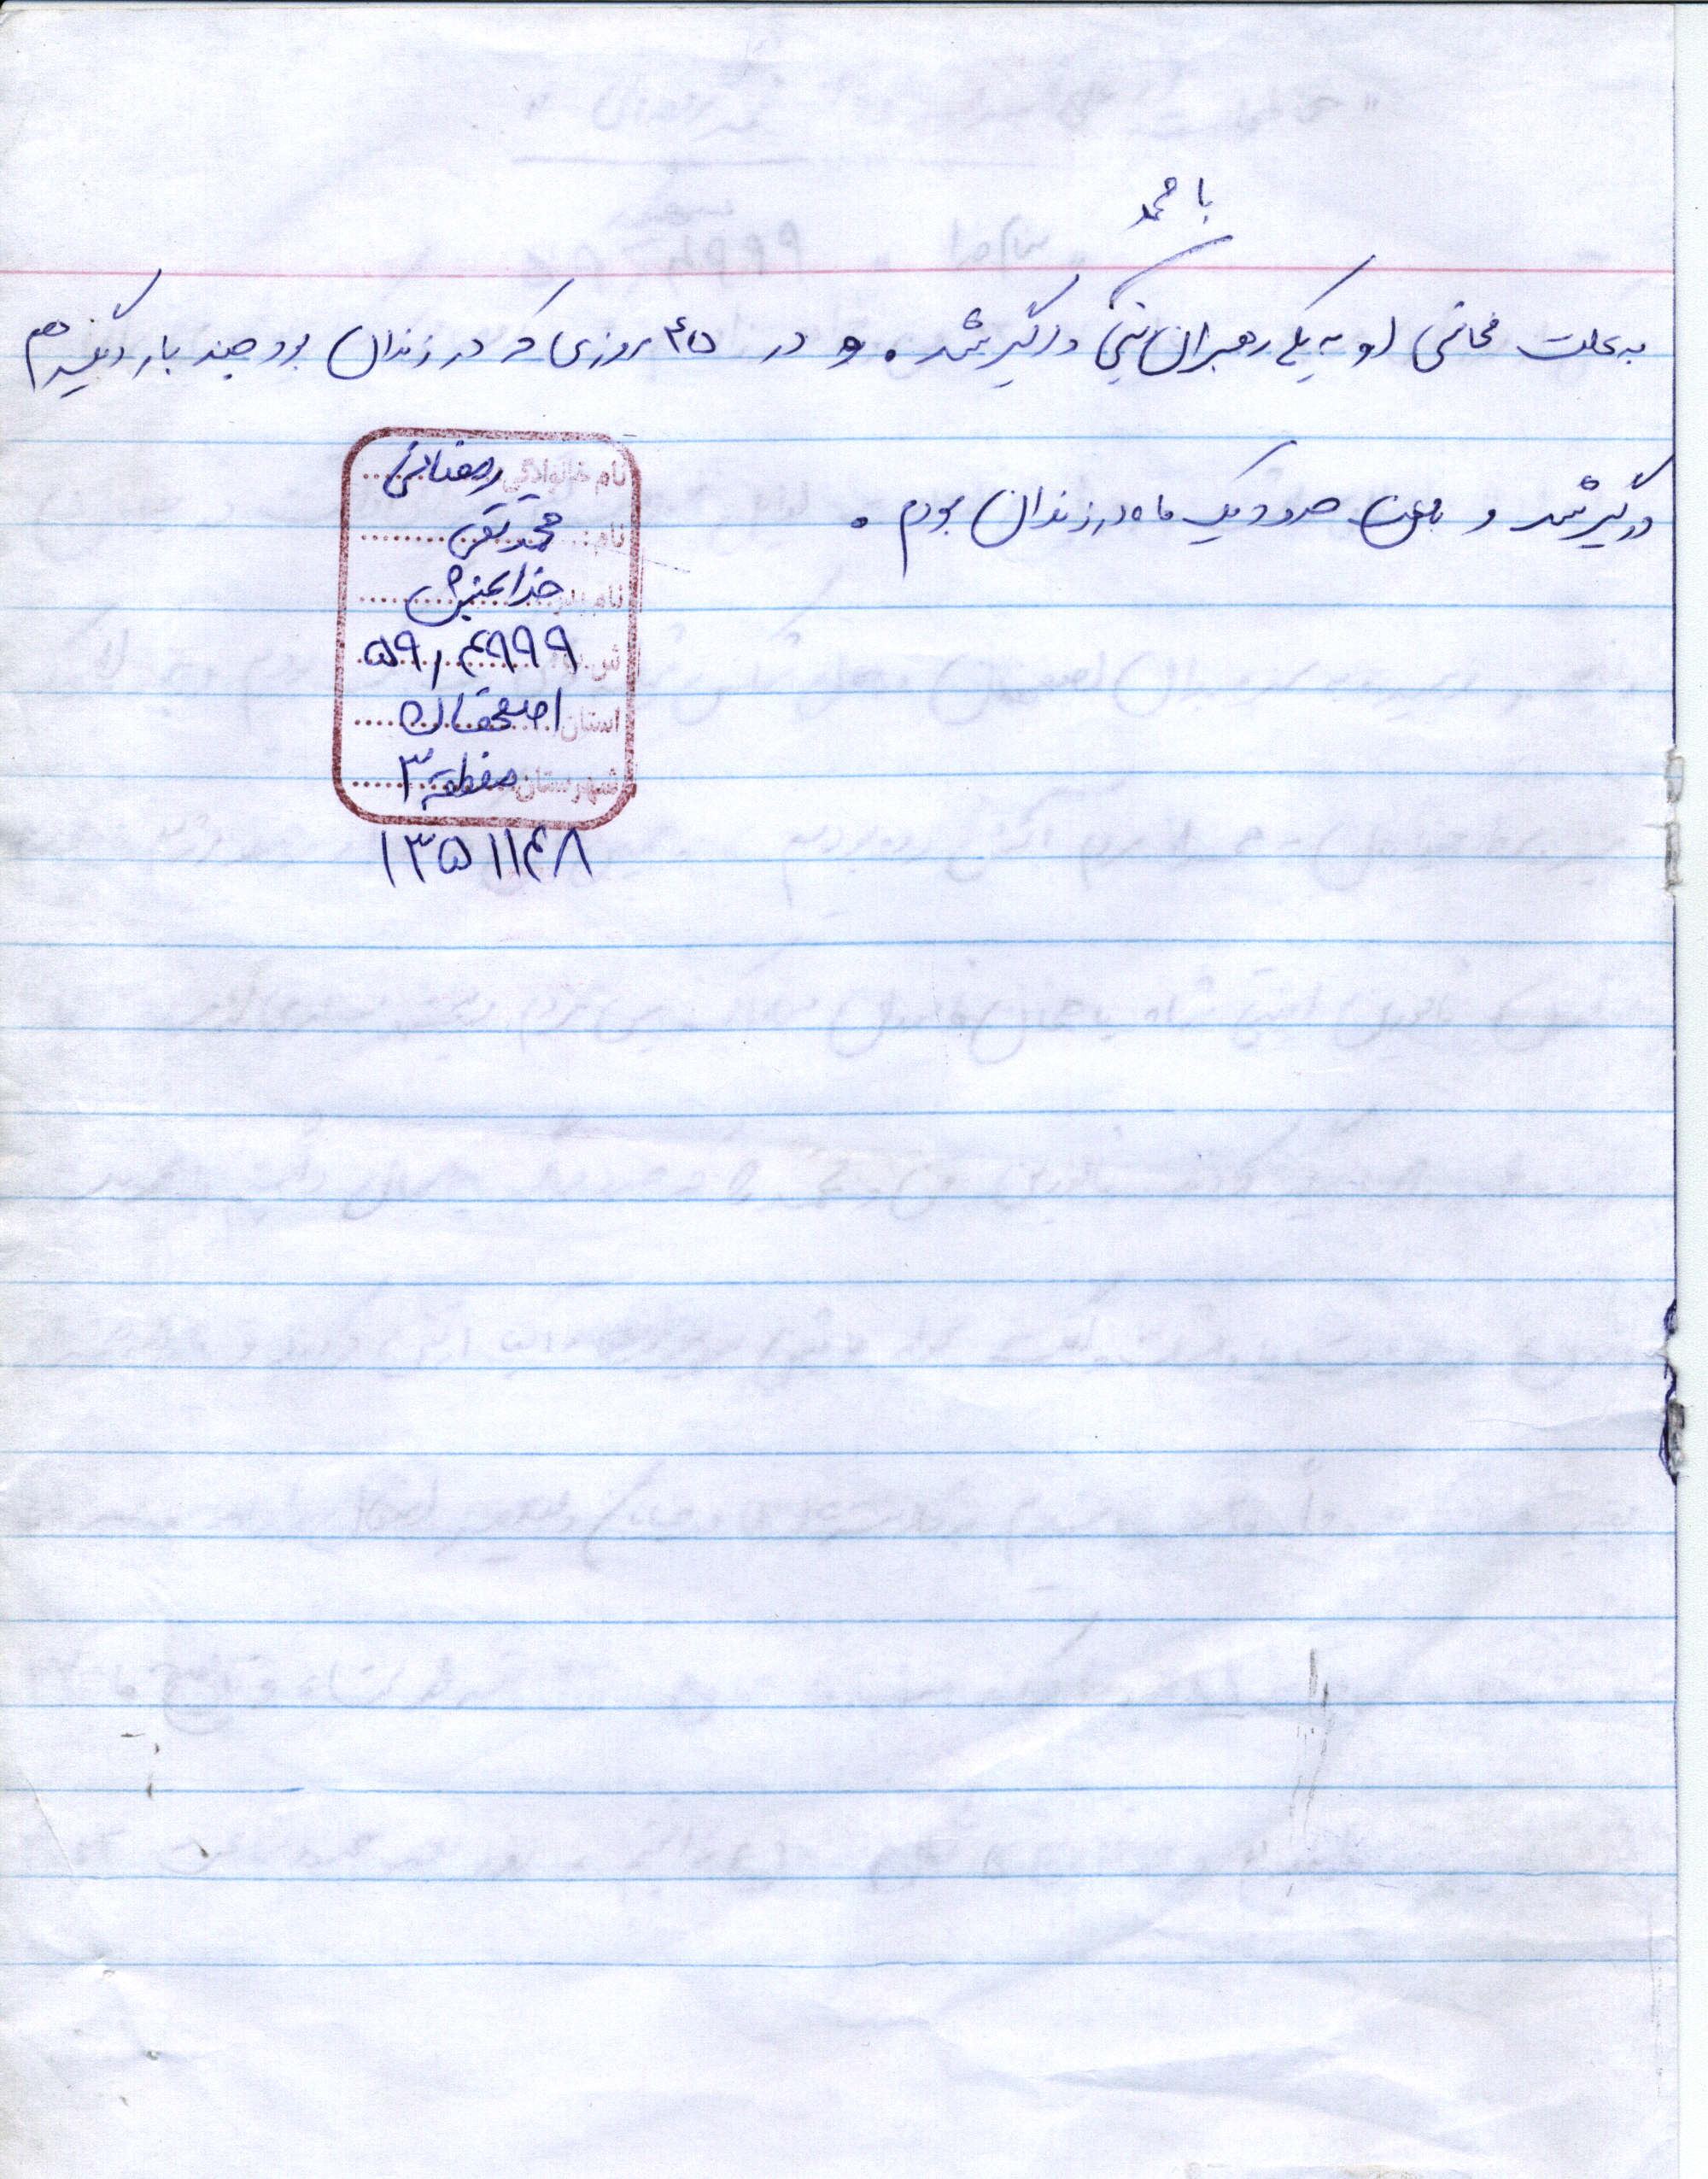 با محمد
به علت فحاشی او به یکی رهبران دینی درگیر شد. و در ۴۵ روزی که در زندان بود چند بار دیگر هم
درگیر شد و با من حدود یک ماه در زندان بودم.
نام خانوادگی رمضانی
نام: محمد تقی
نام پدر: خدابخش
ش.پ. ۵۹/۴۹۹۹
استان اصفهان
شهرستان منطقه ۳
۱۳۵۱۱۴۸